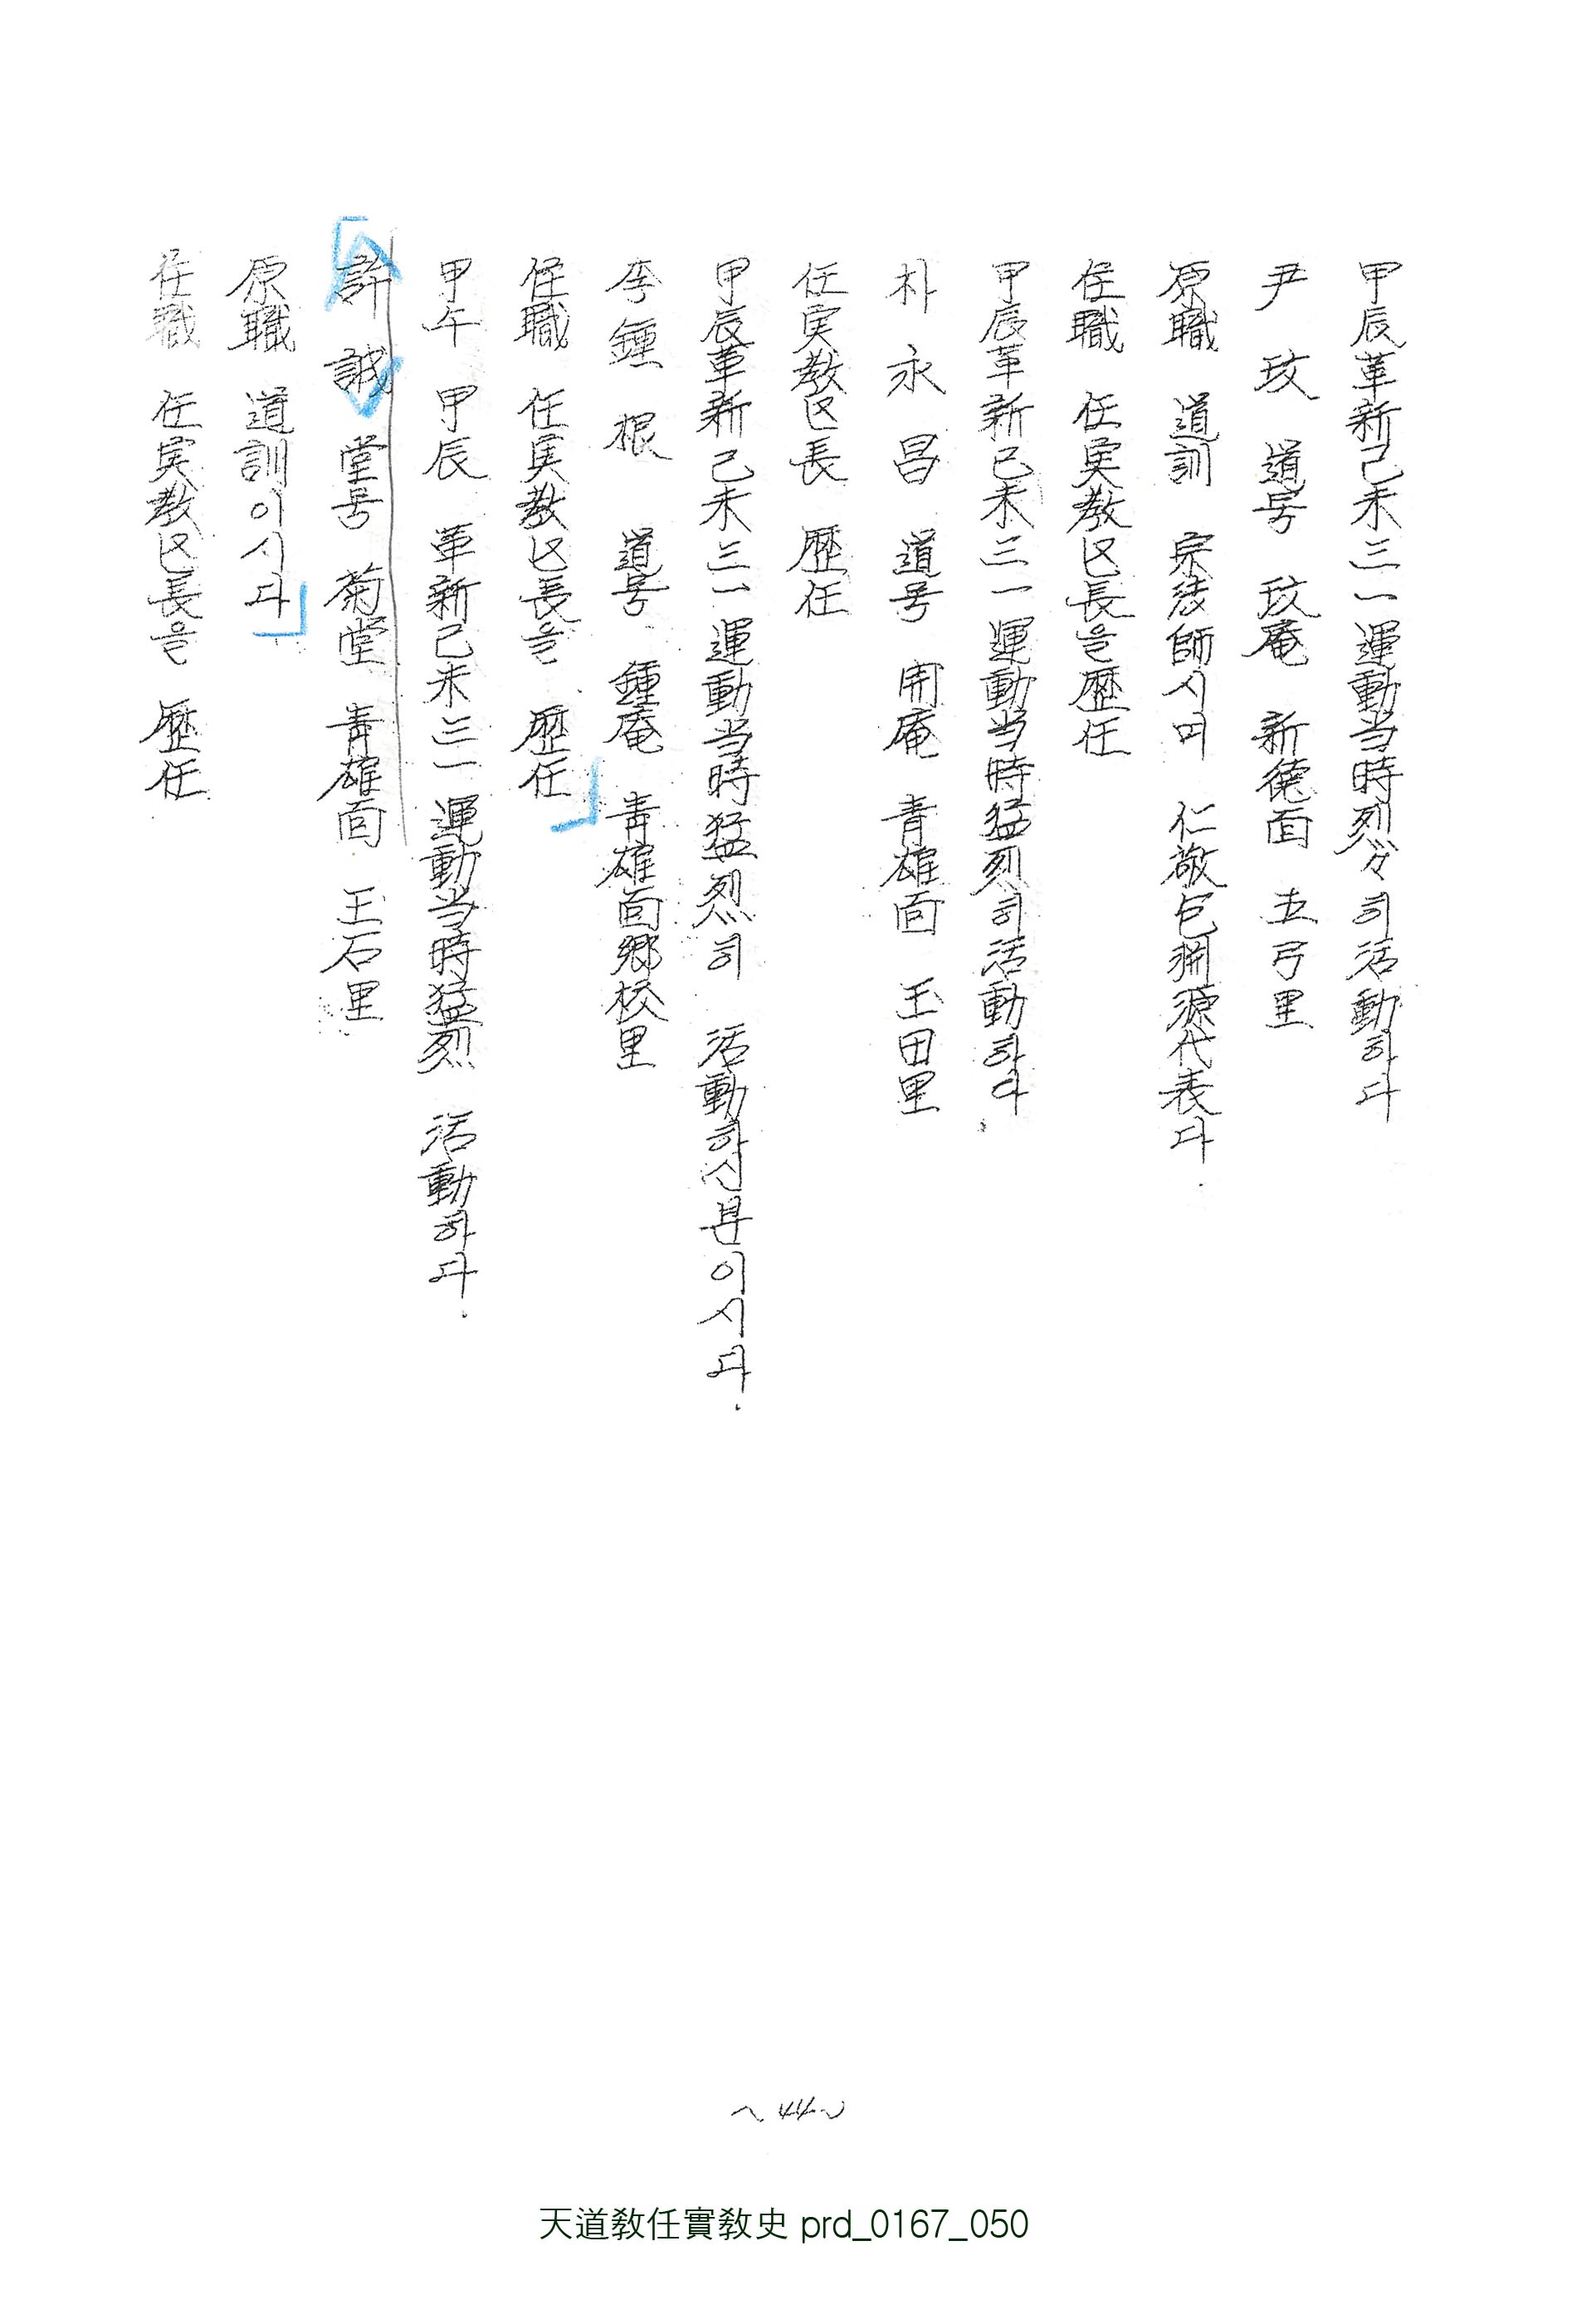 甲辰革新己未三一運動当時烈々히活動하다
尹 玟 道号 玟庵 新德面 五弓里
原職 道訓 宗法師시며 仁敬包淵源代表다.
任職 任実教区長을歷任
甲辰革新己未三一運動当時猛烈히活動하다.
朴永昌 道号 開庵 青雄面 玉田里
任実教区長 歷任
甲辰革新己未三一運動当時猛烈히 活動하신분이시다.
李鍾根 道号 鍾庵 青雄面鄉校里
任職 任実教区長을 歷任
甲午 甲辰 革新己未三一運動当時猛烈 活動하다.
許誠 堂号 菊堂 青雄面 玉石里
原職 道訓이시다
任職 任実教区長을 歷任
~44~
天道教任實教史 prd_0167_050